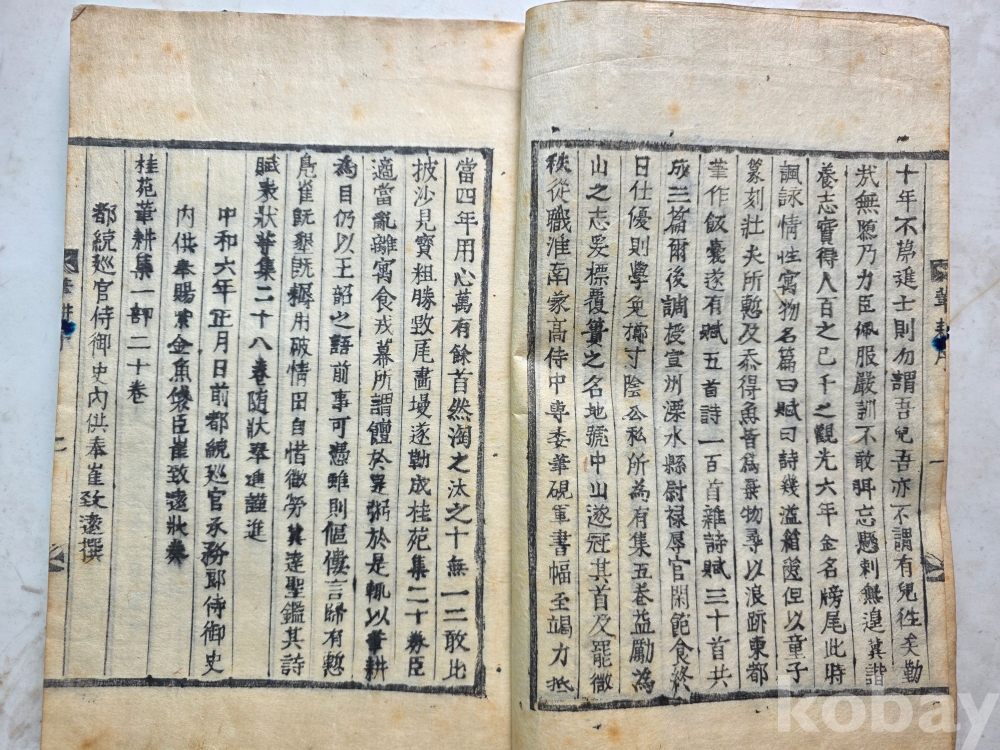 十年不第進士則勿謂吾兒吾亦不謂有兒徃矣勤
㢤無隳乃力臣佩服嚴訓不敢弭忘懸刺無遑冀諧
養志實得人百之己千之觀光六年金名牓尾此時
諷詠情性寓物名篇曰賦曰詩幾溢箱篋但以童子
篆刻壯夫所慙及忝得魚皆爲棄物尋以浪跡東都
筆作飯囊遂有賦五首詩一百首雜詩賦三十首共
成三篇爾後調授宣州溧水縣尉禄厚官閑飽食終
日仕優則學免擲寸陰公私所為有集五卷益勵為
山之志爰標覆簣之名地號中山遂冠其首及罷微
秩從職淮南蒙高侍中専委筆硯軍書輻至竭力抵
當四年用心萬有餘首然淘之汰之十無一二敢比
披沙見寶粗勝毀瓦畫墁遂勒成桂苑集二十卷臣
適當亂離寓食戎幕所謂饘於是粥於是輒以筆耕
為目仍以王韶之語前事可憑雖則傴僂言歸有慙
鳧雀旣墾旣耨用破情田自惜微勞冀達聖鑑其詩
賦表狀等集二十八卷随狀奉進謹進
中和六年正月日前都統巡官承務郎侍御史
內供奉賜紫金魚袋臣崔致遠狀奏
桂苑筆耕集一部二十卷
都統巡官侍御史內供奉崔致遠撰
筆耕序
一
筆耕
二
kobay